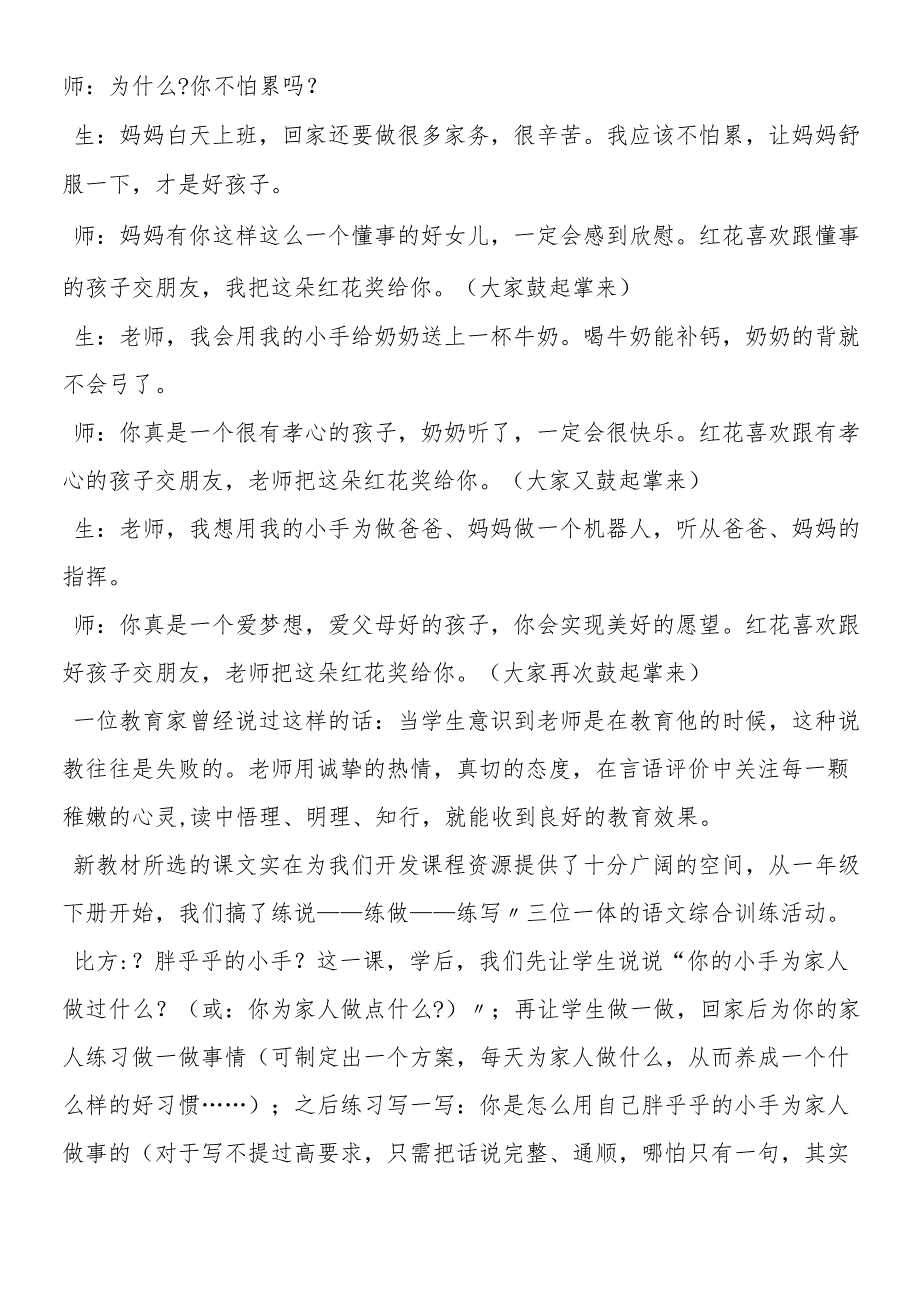 师：为什么?你不怕累吗?
生：妈妈白天上班，回家还要做很多家务，很辛苦。我应该不怕累，让妈妈舒
服一下，才是好孩子。
师：妈妈有你这样这么一个懂事的好女儿，一定会感到欣慰。红花喜欢跟懂事
的孩子交朋友，我把这朵红花奖给你。（大家鼓起掌来）
生：老师，我会用我的小手给奶奶送上一杯牛奶。喝牛奶能补钙，奶奶的背就
不会弓了。
师：你真是一个很有孝心的孩子，奶奶听了，一定会很快乐。红花喜欢跟有孝
心的孩子交朋友，老师把这朵红花奖给你。（大家又鼓起掌来）
生：老师，我想用我的小手为做爸爸、妈妈做一个机器人，听从爸爸、妈妈的
指挥。
师：你真是一个爱梦想，爱父母好的孩子，你会实现美好的愿望。红花喜欢跟
好孩子交朋友，老师把这朵红花奖给你。（大家再次鼓起掌来）
一位教育家曾经说过这样的话：当学生意识到老师是在教育他的时候，这种说
教往往是失败的。老师用诚挚的热情，真切的态度，在言语评价中关注每一颗
稚嫩的心灵,读中悟理、明理、知行，就能收到良好的教育效果。
新教材所选的课文实在为我们开发课程资源提供了十分广阔的空间，从一年级
下册开始，我们搞了练说——练做——练写〃三位一体的语文综合训练活动。
比方:？胖乎乎的小手？这一课，学后，我们先让学生说说“你的小手为家人
做过什么？（或：你为家人做点什么?）〃；再让学生做一做，回家后为你的家
人练习做一做事情（可制定出一个方案，每天为家人做什么，从而养成一个什
么样的好习惯……）；之后练习写一写：你是怎么用自己胖乎乎的小手为家人
做事的（对于写不提过高要求，只需把话说完整、通顺，哪怕只有一句，其实